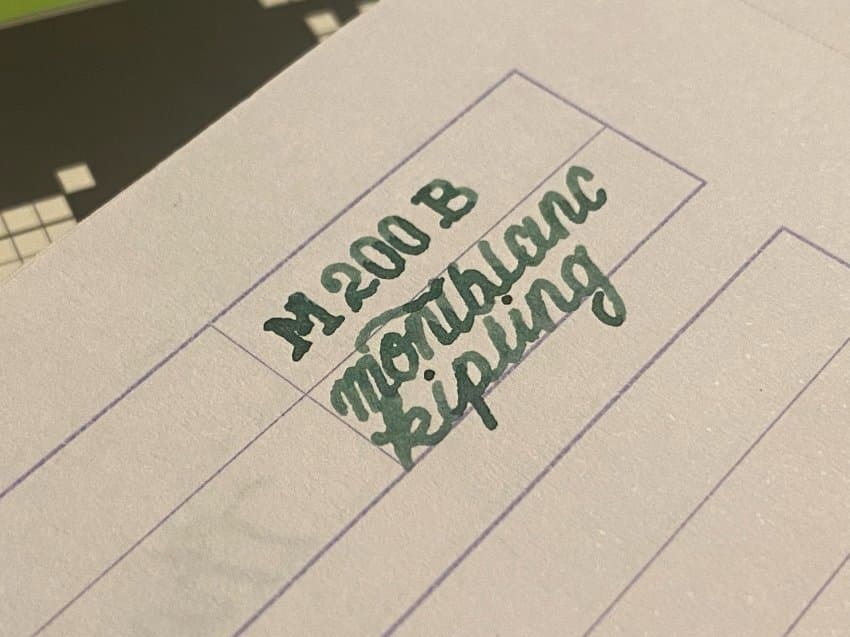 M 200 B
montblanc
kipling